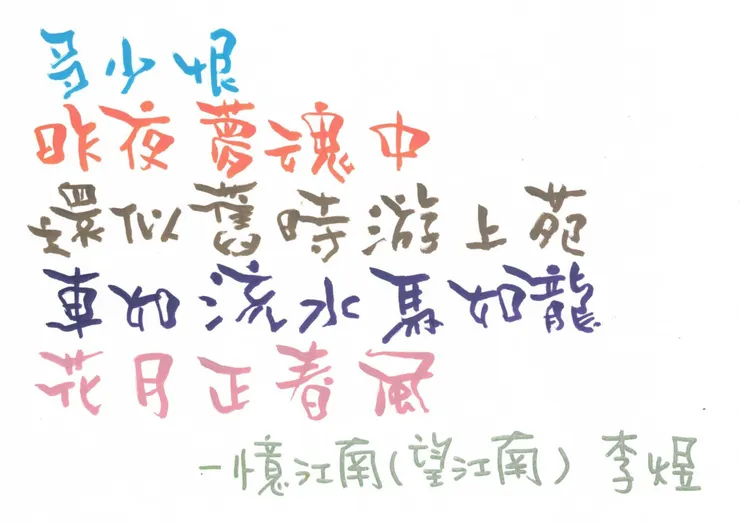 多少恨
昨夜夢魂中
還似舊時游上苑
車如流水馬如龍
花月正春風
－憶江南(望江南) 李煜